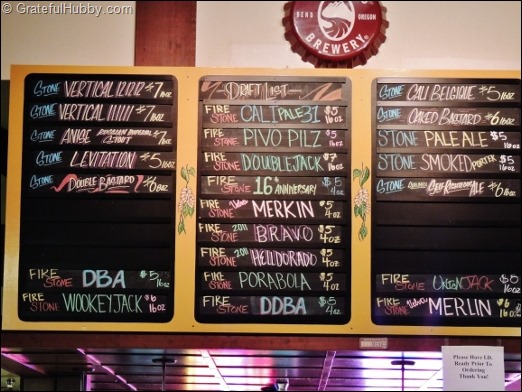 © GratefulHubby.com
BEND OREGON
BREWERY
STONE VERTICAL 12.12.12 $7 16oz
STONE VERTICAL 11.11.11 $7 16oz
STONE ANISE RUSSIAN IMPERIAL STOUT $7 16oz
STONE LEVITATION $5 16oz
STONE DOUBLE BASTARD $6
FIRE STONE DBA $5 16oz
FIRE STONE WOOKEYJACK $6 16oz
DRAFT LIST
FIRE STONE CALI PALE 31 $5 16oz
FIRE STONE PIVO PILZ $5 16oz
FIRE STONE DOUBLEJACK $7 16oz
FIRE STONE 16th ANNIVERSARY $5 4oz
FIRE STONE MERKIN $5 4oz
FIRE STONE 2011 BRAVO $5 4oz
FIRE STONE 2011 HELLDORADO $5 4oz
FIRE STONE PORABOLA $5 4oz
FIRE STONE DDBA $5 4oz
STONE CALI BELGIQUE $5 16oz
STONE OAKED BASTARD $6
STONE PALE ALE $5 16oz
STONE SMOKED PORTER $5 16oz
STONE ALE $6
FIRE STONE UNION JACK $5 16oz
FIRE STONE MERLIN $6 16oz
Please Have I.D.
Ready Prior To
Ordering
Thank You!